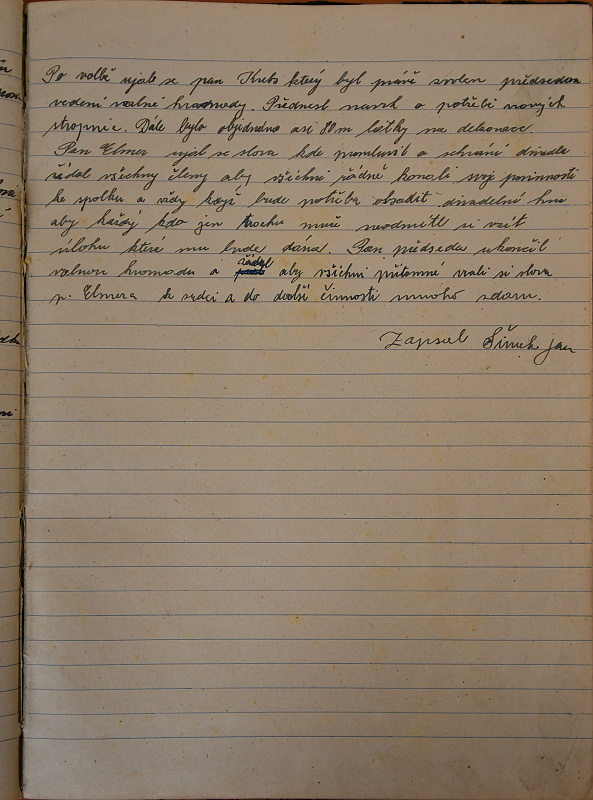 Po volbě ujal se pan Krebs který byl právě zvolen předsedou
vedení valné hromady. Přednesl navrh o potřebě nových
stropnic. Dále bylo objednáno asi 80m látky na dekorace.
Pan Elmer ujal se slova kde promluvil o sehrání divadla
žádal všechny členy aby všichni řádně konali svoje povinnosti
ke spolku a vždy když bude potřeba obsadit divadelní hru
aby každý kdo jen trochu muže neodmítl si vzít
úlohu která mu bude dána. Pan předseda ukončil
valnou hromadu a žádal aby všichni přítomné vzali si slova
p. Elmera k srdci a do další činnosti mnoho zdaru.
Zapsal Šimek Jan